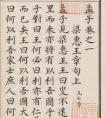 孟子卷之一
梁惠王章句上
孟子見梁惠王王曰叟不遠
里而來亦將有以利吾國
子對曰王何必曰利亦有仁
而已矣王曰何以利吾國
曰何以利吾家士庶人曰何